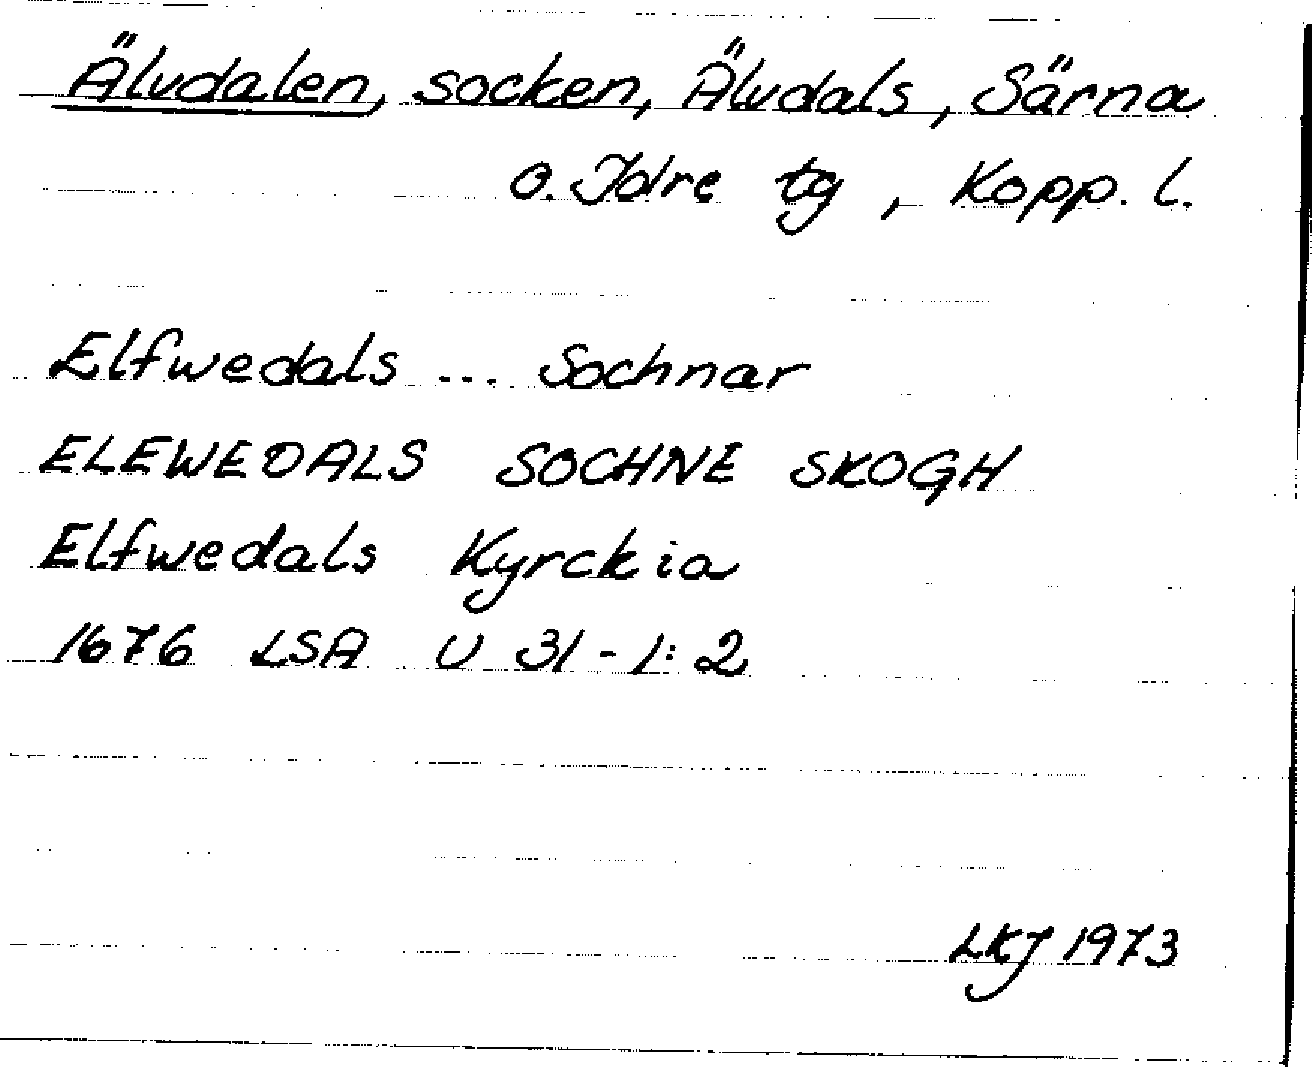 Älvdalen, socken, Älvdals, Särna
o. Idre tg, Kopp. l.
Elfwedals ... Sochnar
ELEWEDALS SOCHNE SKOGH
Elfwedals Kyrckia
1676 LSA U 31-1:2
LKJ 1973